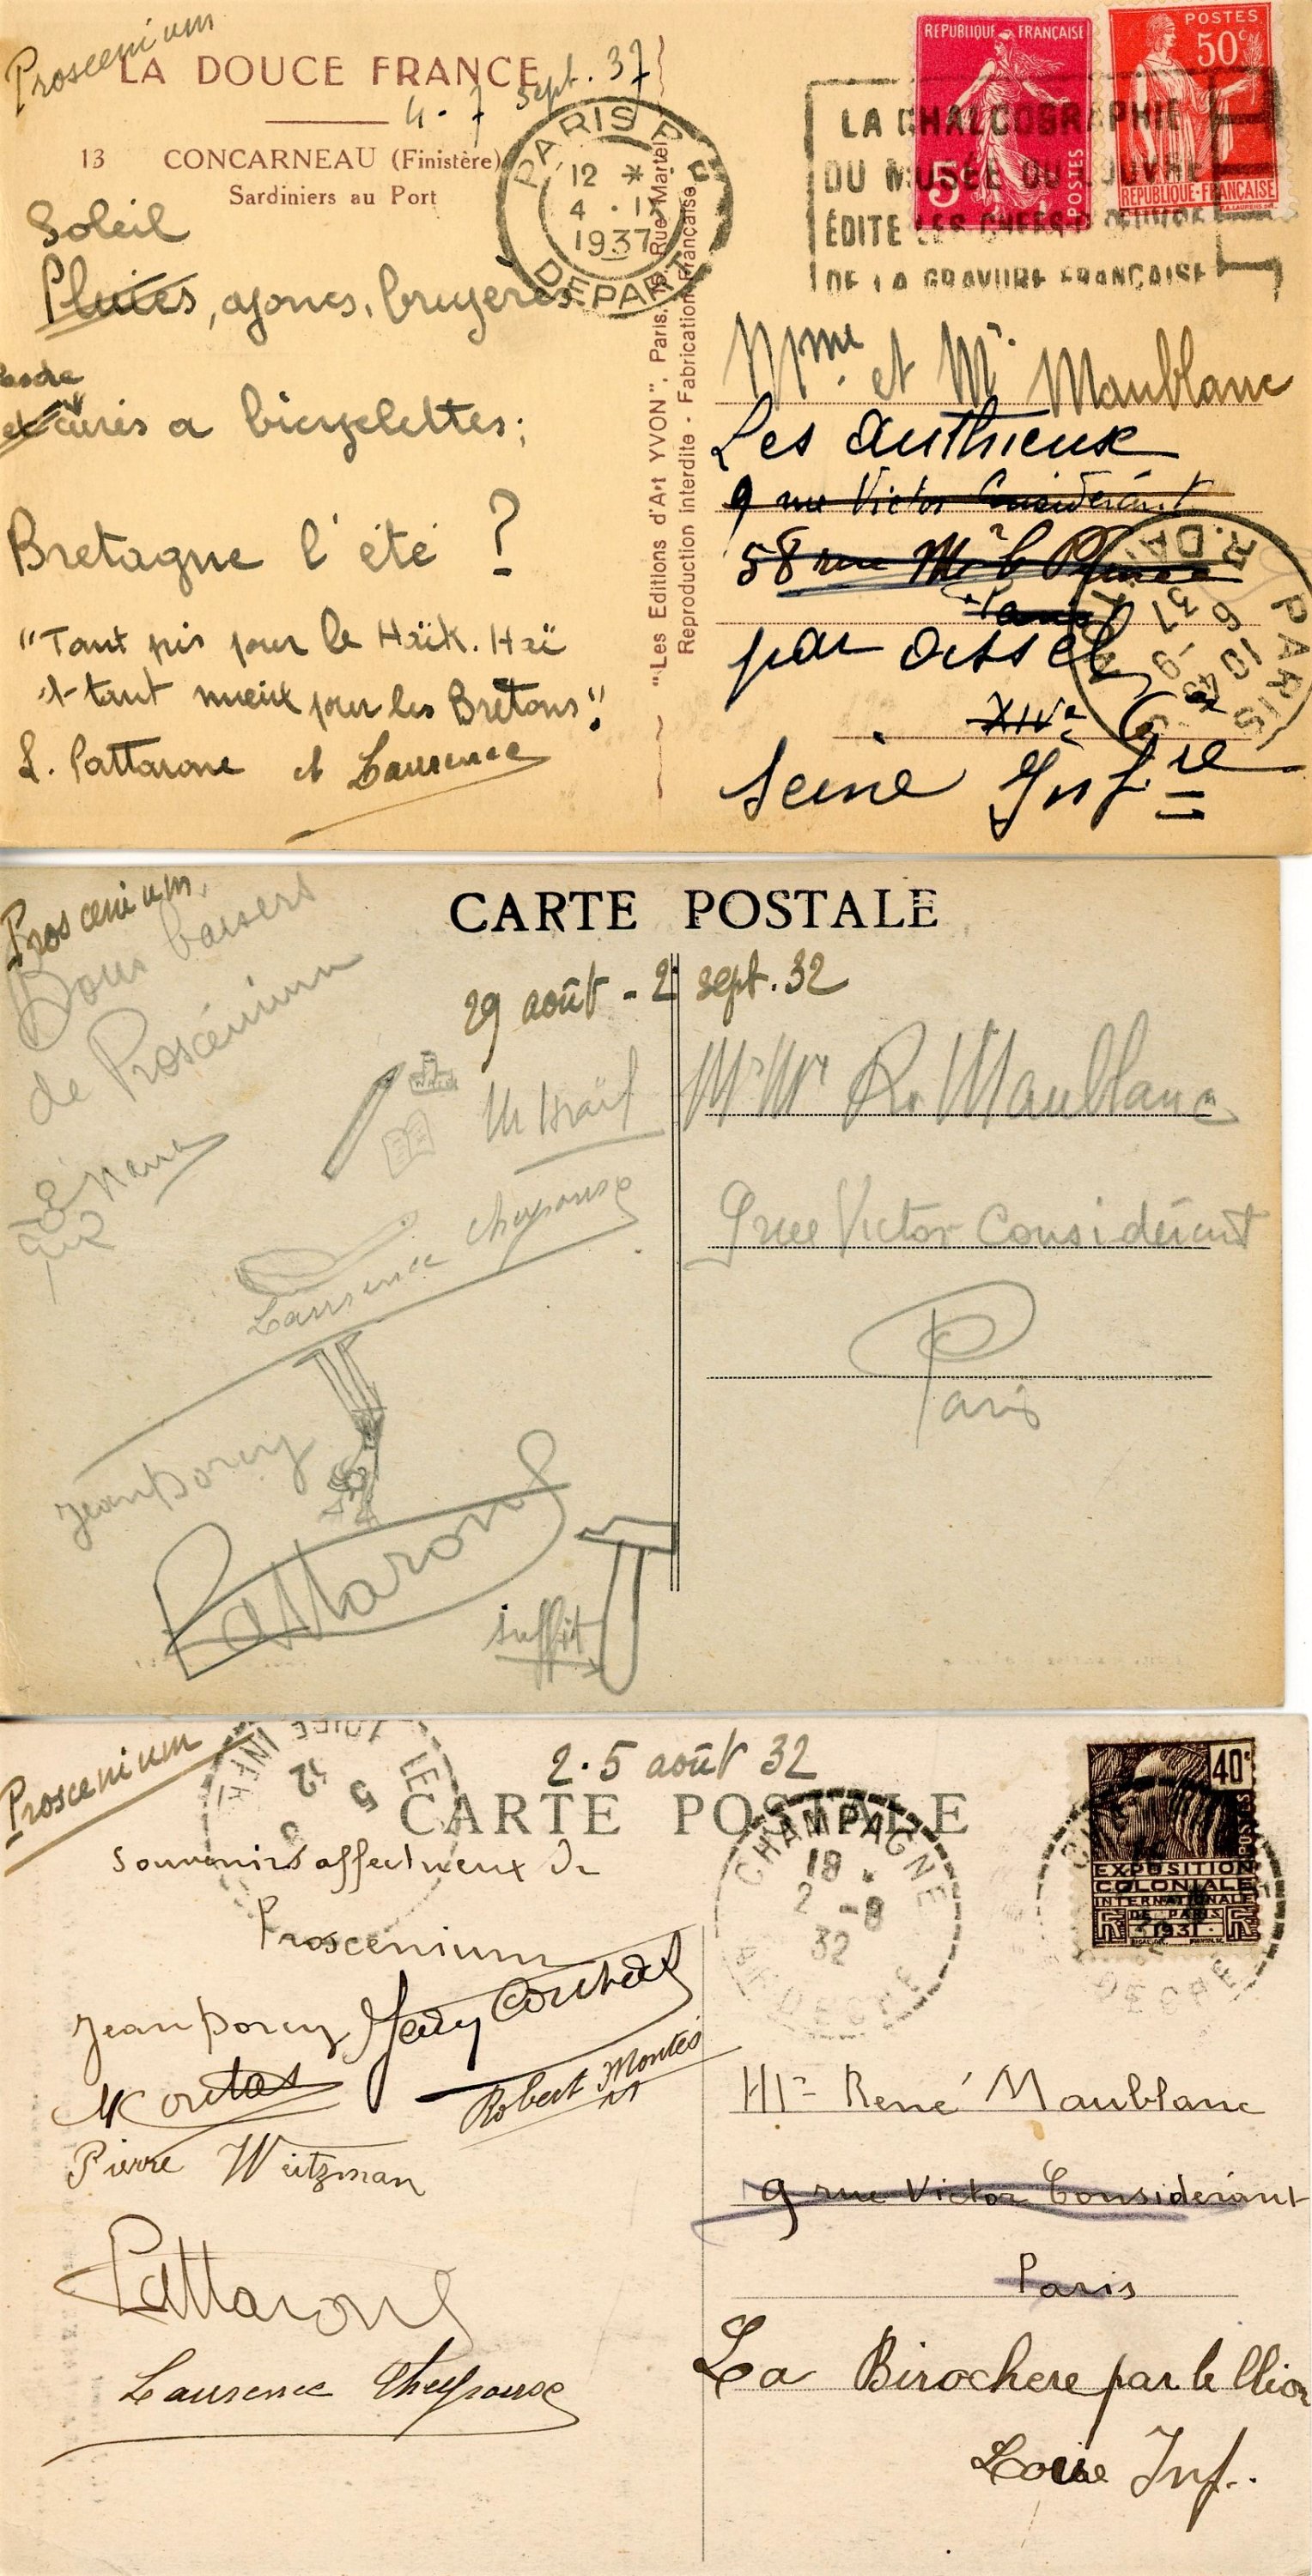 Proscenium
LA DOUCE FRANCE
4. 7 sept. 37
13 CONCARNEAU (Finistère)
Sardiniers au Port
PARIS
12 *
4 . IX
1937
DEPART
LA CHALCOGRAPHIE
DU MUSÉE DU LOUVRE
ÉDITE LES CHEFS D'OEUVRE
DE LA GRAVURE FRANÇAISE
REPUBLIQUE FRANÇAISE
5c
POSTES
POSTES
50c
REPUBLIQUE-FRANÇAISE
Soleil
Pluies, ajoncs, bruyères
et curés a bicyclettes;
Bretagne l'été ?
"Tant pis pour le Haïk. Haï
et tant mieux pour les Bretons"!
L. Pattarone et Laurence
"Les Editions d'Art YVON", Paris, 15, Rue Martel
Reproduction Interdite - Fabrication Française
Mme. et Mr. Maublanc
Les Authieux
9 rue Victor Considérant
58 rue Mr le Prince
Paris
par Oissel
XIVe
Seine Infre
PARIS
Proscenium.
CARTE POSTALE
Bons baisers
de Proscénium
29 août - 2 sept. 32
Laurence Cheyrouse
Jean Dorcy
Pattarone
suffit
Mr Me R. Maublanc
9 rue Victor Considérant
Paris
Proscenium
2.5 août 32
CARTE POSTALE
LOIRE INFRE
5
12
CHAMPAGNE
18 .
2 -8
32
ARDECHE
40c
POSTES
EXPOSITION
COLONIALE
INTERNATIONALE
DE PARIS
1931
ARDECHE
Souvenirs affectueux de
Proscenium
Jean Dorcy
Robert Montes
Pierre Weitzman
Pattarone
Laurence Cheyrouse
Mr René Maublanc
9 rue Victor Considerant
Paris
La Birochere par le Clion
Loire Inf.